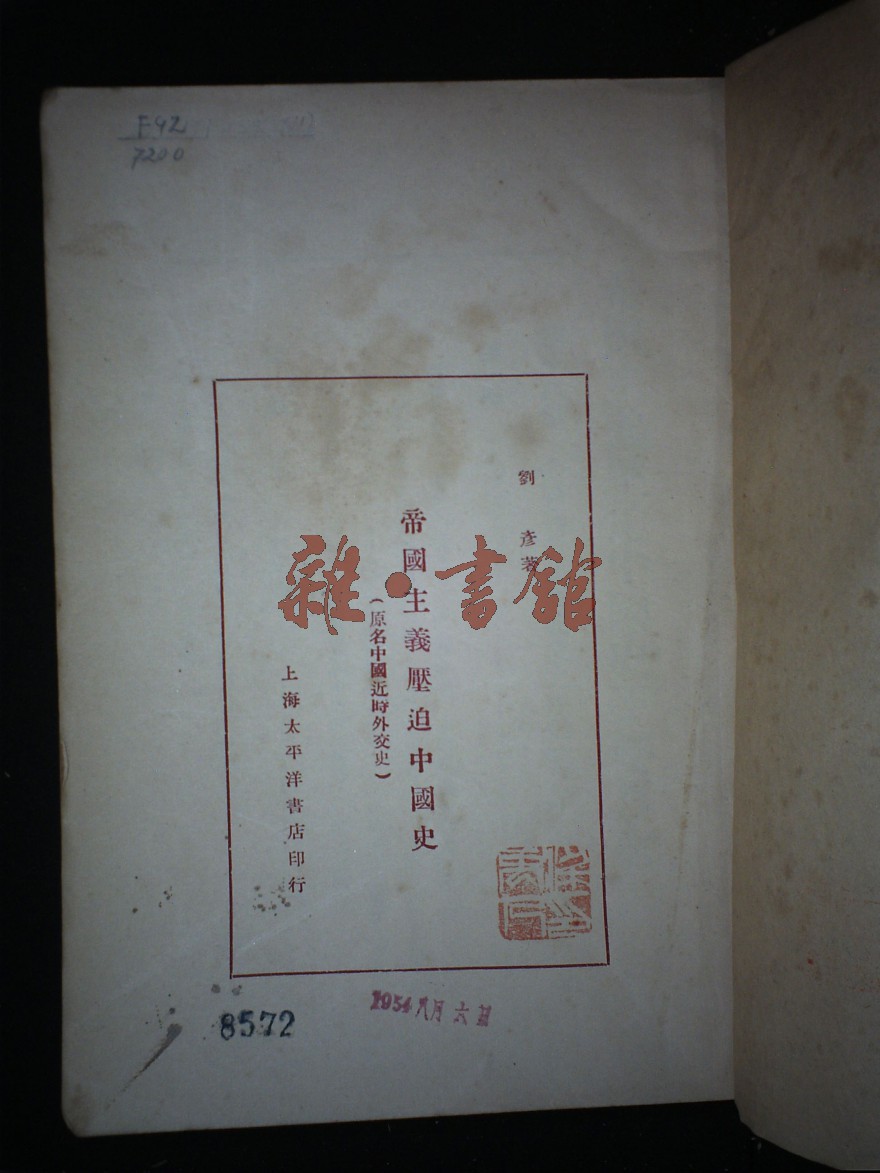 F92
7200
劉彥著
帝國主義壓迫中國史
(原名中國近時外交史)
上海太平洋書店印行
雜·書館
8572
1954八月六日